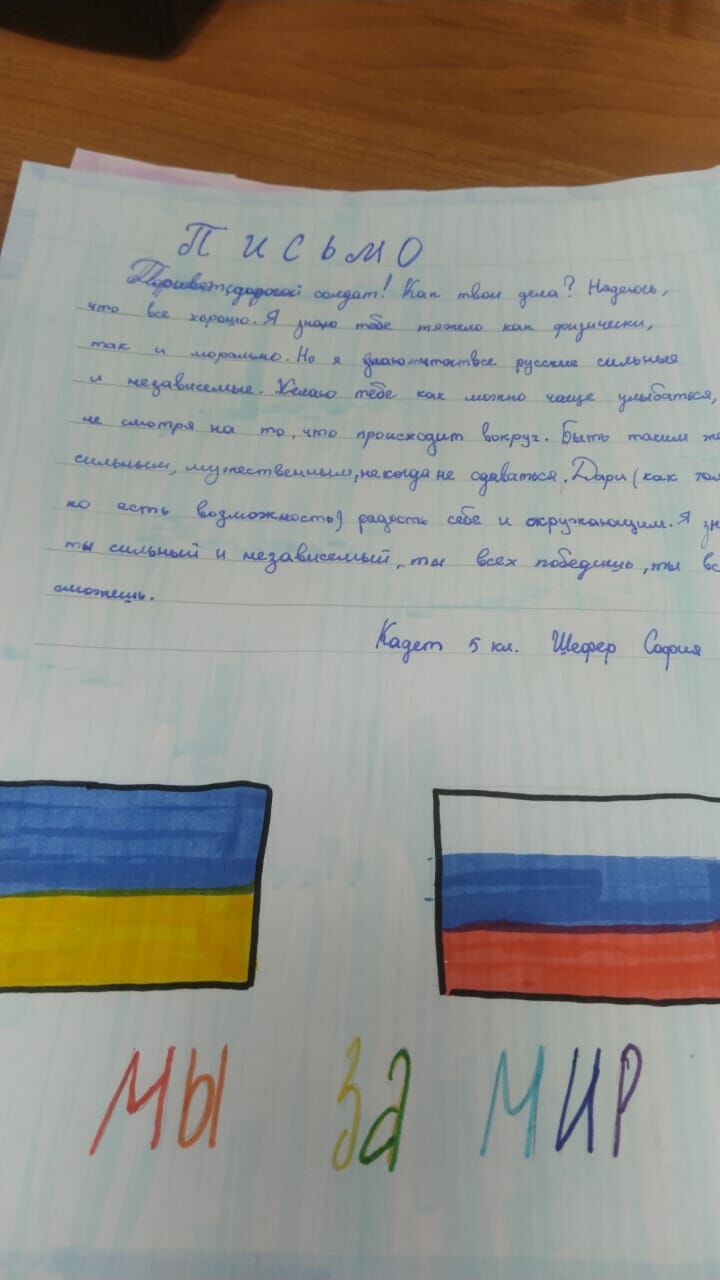 ПИСЬМО
Привет, дорогой солдат! Как твои дела? Надеюсь,
что все хорошо. Я знаю тебе тяжело как физически,
так и морально. Но я знаю, что все русские сильные
и независемые. Желаю тебе как можно чаще улыбаться,
не смотря на то, что происходит вокруг. Быть таким же
сильным, мужественным, некогда не сдаваться. Дари (как
но есть возможность) радость себе и окружающим. Я
ты сильный и независемый, ты всех победишь, ты
сможешь.
Кадет 5 кл. Шефер София
МЫ ЗА МИР